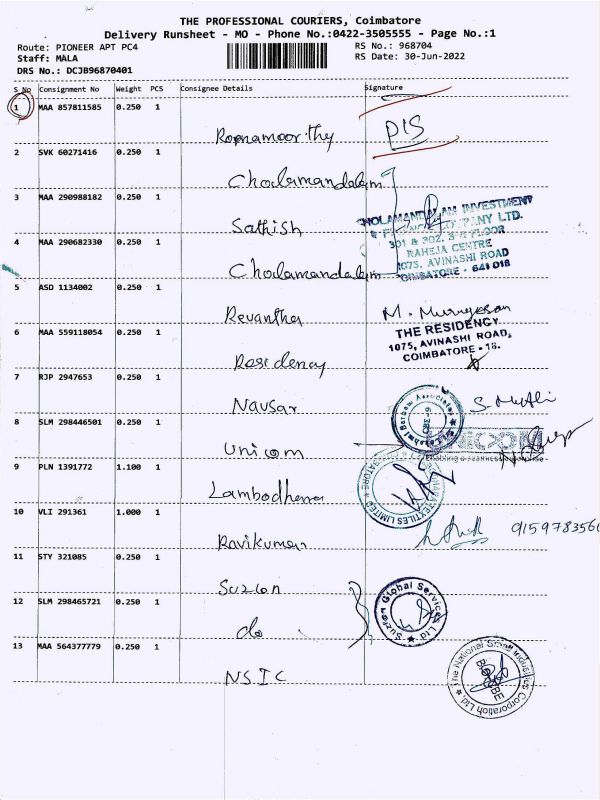 THE PROFESSIONAL COURIERS, Coimbatore
Delivery Runsheet - MO - Phone No.:0422-3505555 - Page No.:1
Route: PIONEER APT PC4 RS No.: 968704
Staff: MALA RS Date: 30-Jun-2022
DRS No.: DCJB96870401
S No Consignment No Weight PCS Consignee Details Signature
1 MAA 857811585 0.250 1
Ramamoorthy DIS
2 SVK 60271416 0.250 1
Cholamandalam
3 MAA 290988182 0.250 1
Sathish
CHOLAMANDALAM INVESTMENT
& FINANCE COMPANY LTD.
301 & 302, 3rd FLOOR
RAHEJA CENTRE
1073, AVINASHI ROAD
COIMBATORE - 641 018
4 MAA 290682330 0.250 1
Cholamandalam
5 ASD 1134002 0.250 1
Revantha M. Murugesan
THE RESIDENCY
1075, AVINASHI ROAD,
COIMBATORE - 18.
6 MAA 559118054 0.250 1
Residency
7 RJP 2947653 0.250 1
Navsar
8 SLM 298446501 0.250 1
Unicom
9 PLN 1391772 1.100 1
Lambodhara
TEXTILES LIMITED
10 VLI 291361 1.000 1
Ravikumar 915978356
11 STY 321085 0.250 1
Suzlon
Suzlon Global Services Ltd
12 SLM 298465721 0.250 1
do
13 MAA 564377779 0.250 1
NSIC
The National Small Industries Corporation Ltd.